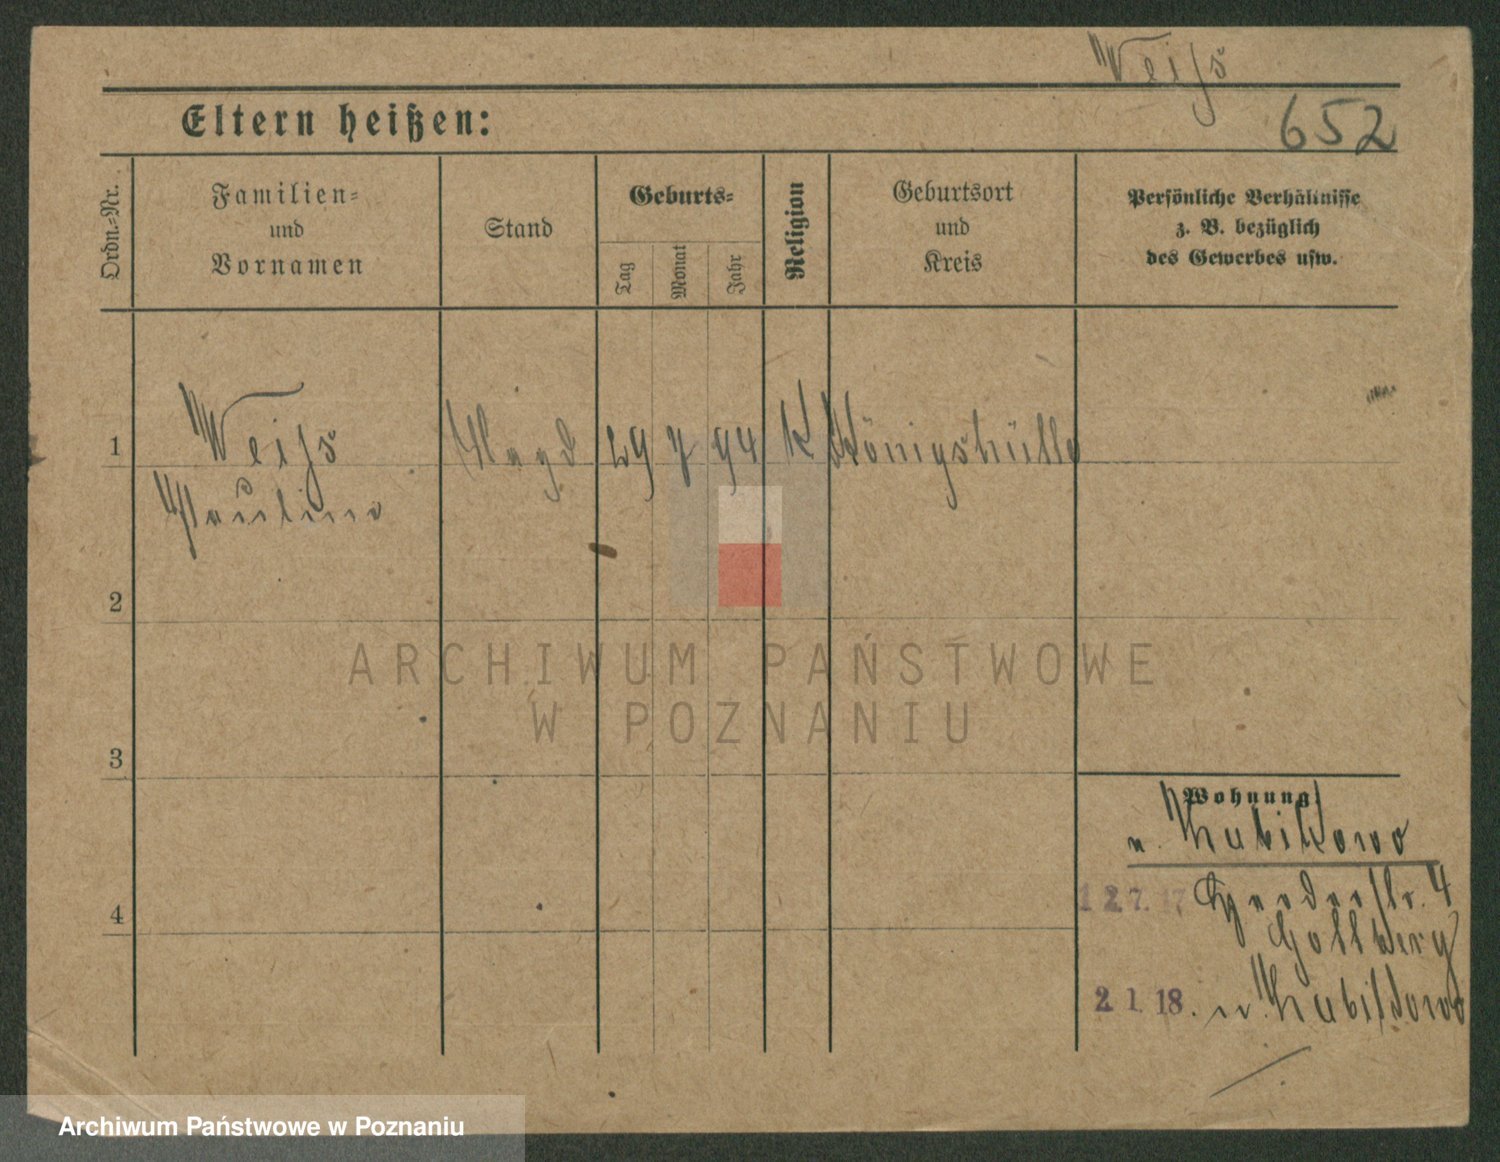 Weiſs
Eltern heißen:
652
Ordn.=Nr.
Familien=
und
Vornamen
Stand
Geburts=
Tag
Monat
Jahr
Religion
Geburtsort
und
Kreis
Persönliche Verhältnisse
z. B. bezüglich
des Gewerbes usw.
1
Weiſs
Magd
29
7
94
K
Königshütte
Pauline
2
ARCHIWUM PAŃSTWOWE
W POZNANIU
3
Wohnung:
n. Kubikowo
12.7.17
Gollberg
4
2.1.18.
Archiwum Państwowe w Poznaniu